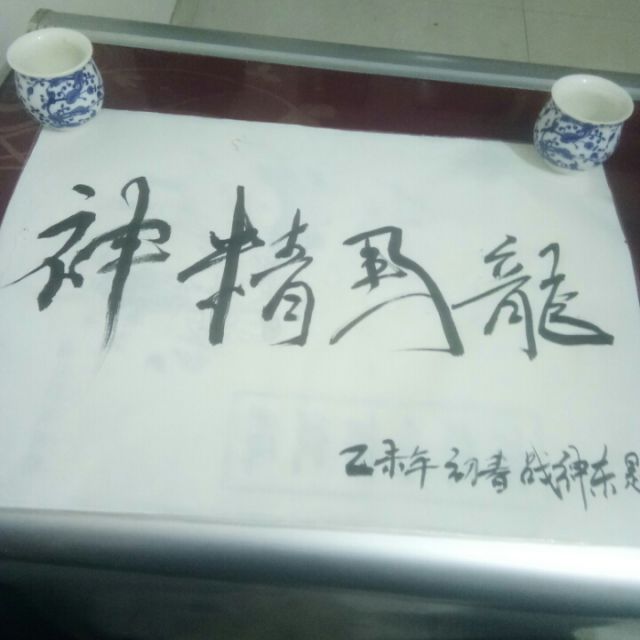 龍馬精神
乙未年初春战神东